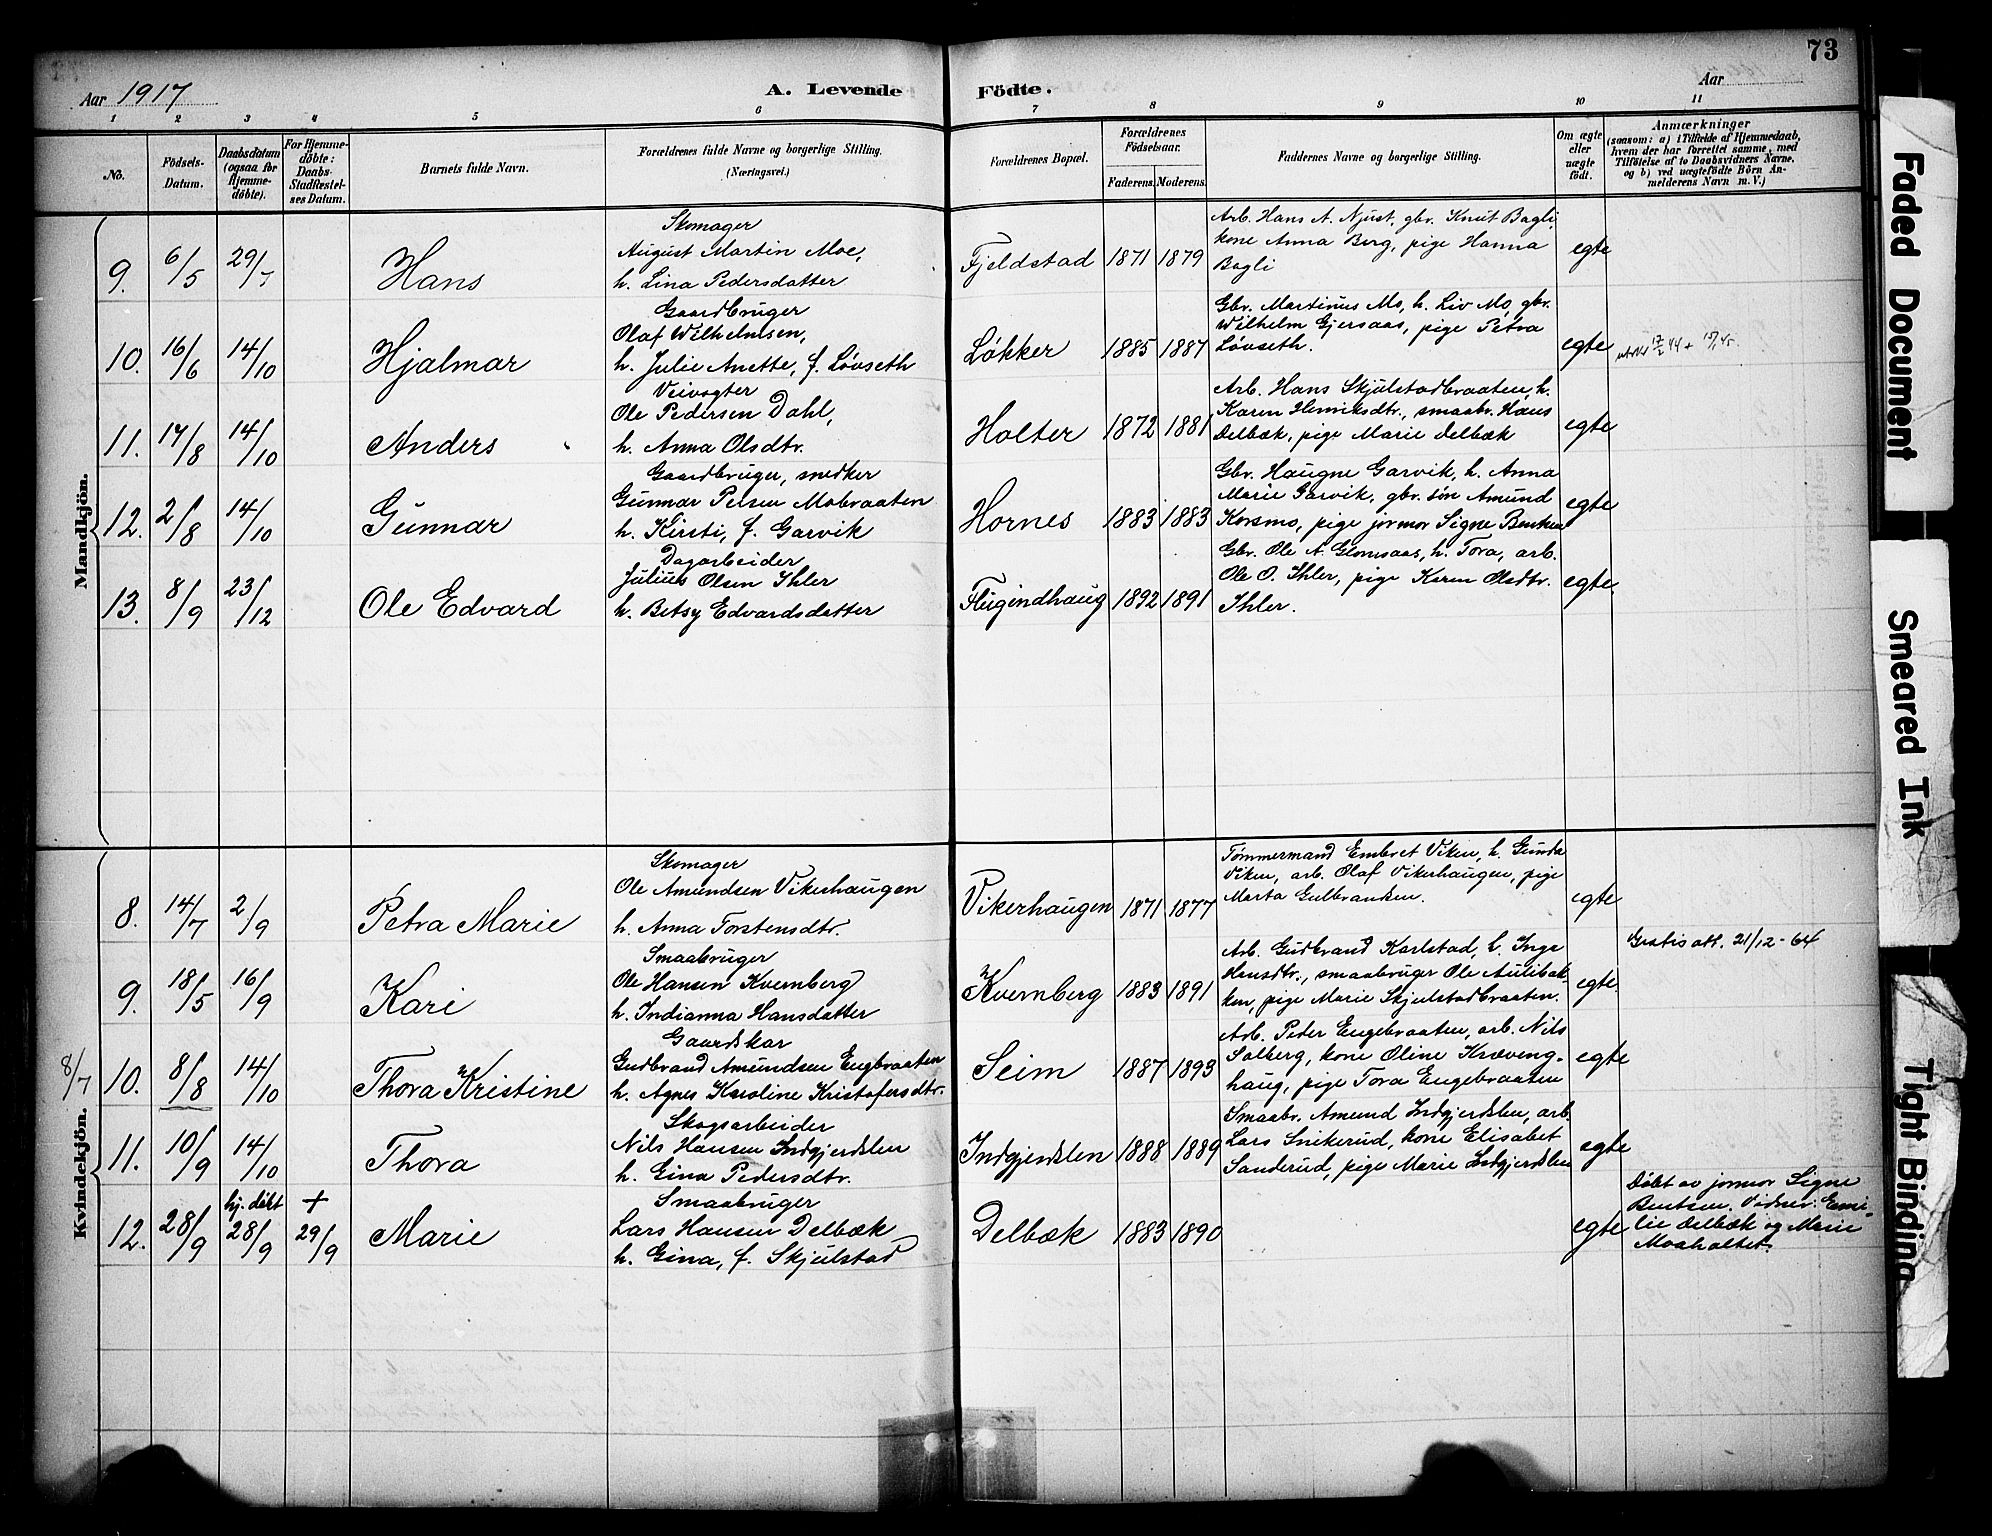 73
Aar 1917
A. Levende Födte.
Aar
1 2 3 4 5 6 7 8 9 10 11
No.
Födsels-
Datum.
Daabsdatum
(ogsaa for
Hjemme-
döbte).
For Hjemme-
döbte:
Daabs-
Stadfæstel-
ses Datum.
Barnets fulde Navn.
Forældrenes fulde Navne og borgerlige Stilling.
(Næringsvei.)
Forældrenes Bopæl.
Forældrenes
Födselsaar.
Faderens. Moderens.
Faddernes Navne og borgerlige Stilling.
Om ægte
eller
uægte
födt.
Anmærkninger
(saasom: a) i Tilfælde af Hjemmedaab,
hvem der har forrettet samme, med
Tilföielse af to Daabsvidners Navne,
og b) ved uægtefödte Börn An-
melderens Navn m. V.)
Mandkjön.
9. 6/5 29/7 Hans
Skomager
August Martin Moe,
h. Lina Pedersdatter
Fjeldstad 1871 1879
Arb. Hans A. Njust, gbr. Knut Bagli,
kone Anna Berg, pige Hanna
Bagli
egte
10. 16/6 14/10 Hjalmar
Gaardbruger
Olaf Wilhelmsen,
h. Julie Anette, f. Løvseth
Løkker 1885 1887
Gbr. Martinus Mo, h. Liv Mo, gbr.
Wilhelm Gjersaas, pige Petra
Løvseth.
egte
11. 17/8 14/10 Anders
Veivogter
Ole Pedersen Dahl,
h. Anna Olsdtr.
Holter 1872 1881
Arb. Hans Skjulstadbraaten, h.
Karen Henriksdtr., smaabr. Hans
Delbæk, pige Marie Delbæk
egte
12. 2/8 14/10 Gunnar
Gaardbruger, snedker
Gunnar Persen Mobraaten
h. Kirsti, f. Garvik
Hornes 1883 1883
Gbr. Haugne Garvik, h. Anna
Marie Garvik, gbr. søn Amund
Korsmo, pige jormor Signe Bentsen
egte
13. 8/9 23/12 Ole Edvard
Dagarbeider
Julius Olsen Ihler
h. Betsy Edvardsdatter
Flugindhaug 1892 1891
Gbr. Ole A. Glomsaas, h. Tora, arb.
Ole O. Ihler, pige Karen Olsdtr.
Ihler.
egte
Kvindekjön.
8. 14/7 2/9 Petra Marie
Skomager
Ole Amundsen Vikerhaugen
h. Anna Torstensdtr.
Vikerhaugen 1871 1877
Tømmermand Embret Viken, h. Gunda
Viken, arb. Olaf Vikerhaugen, pige
Marta Gulbrandsen.
egte
9. 18/5 16/9 Kari
Smaabruger
Ole Hansen Kvernberg
h. Indianna Hansdatter
Kvernberg 1883 1891
Arb. Gudbrand Karlstad, h. Inga
Hansdtr., smaabruger Ole Aulibak-
ken, pige Marie Skjulstadbraaten.
egte.
Gratis att. 21/12 - 64
8/7
10. 8/8 14/10 Thora Kristine
Gaardskar
Gudbrand Amundsen Engbraaten
h. Agnes Karoline Kristofersdtr.
Seim 1887 1893
Arb. Peder Engebraaten, arb. Nils
Solberg, kone Oline Kræveng-
haug, pige Tora Engebraaten
egte
11. 10/9 14/10 Thora
Skogsarbeider
Nils Hansen Indgjerdslen
h. Gina Pedersdtr.
Indgjerdslen 1888 1889
Smaabr. Amund Indgjerdslen, arb.
Lars Snikerud, kone Elisabet
Sanderud, pige Marie Indgjerdslen
egte
12. 28/9 hj. døbt 28/9 + 29/9 Marie
Smaabruger
Lars Hansen Delbæk
h. Gina, f. Skjulstad
Delbæk 1883 1890
egte
Døbt av jormor Signe
Bentsen. Vidner: Emi-
lie Delbæk og Marie
Moaholtet.
Faded Document
Smeared Ink
Tight Binding